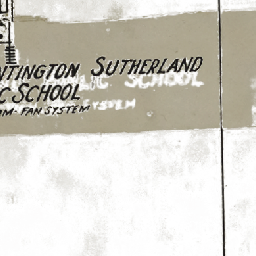 NTINGTON SUTHERLAND
C SCHOOL
OM-FAN SYSTEM
PUBLIC SCHOOL
SYSTEM